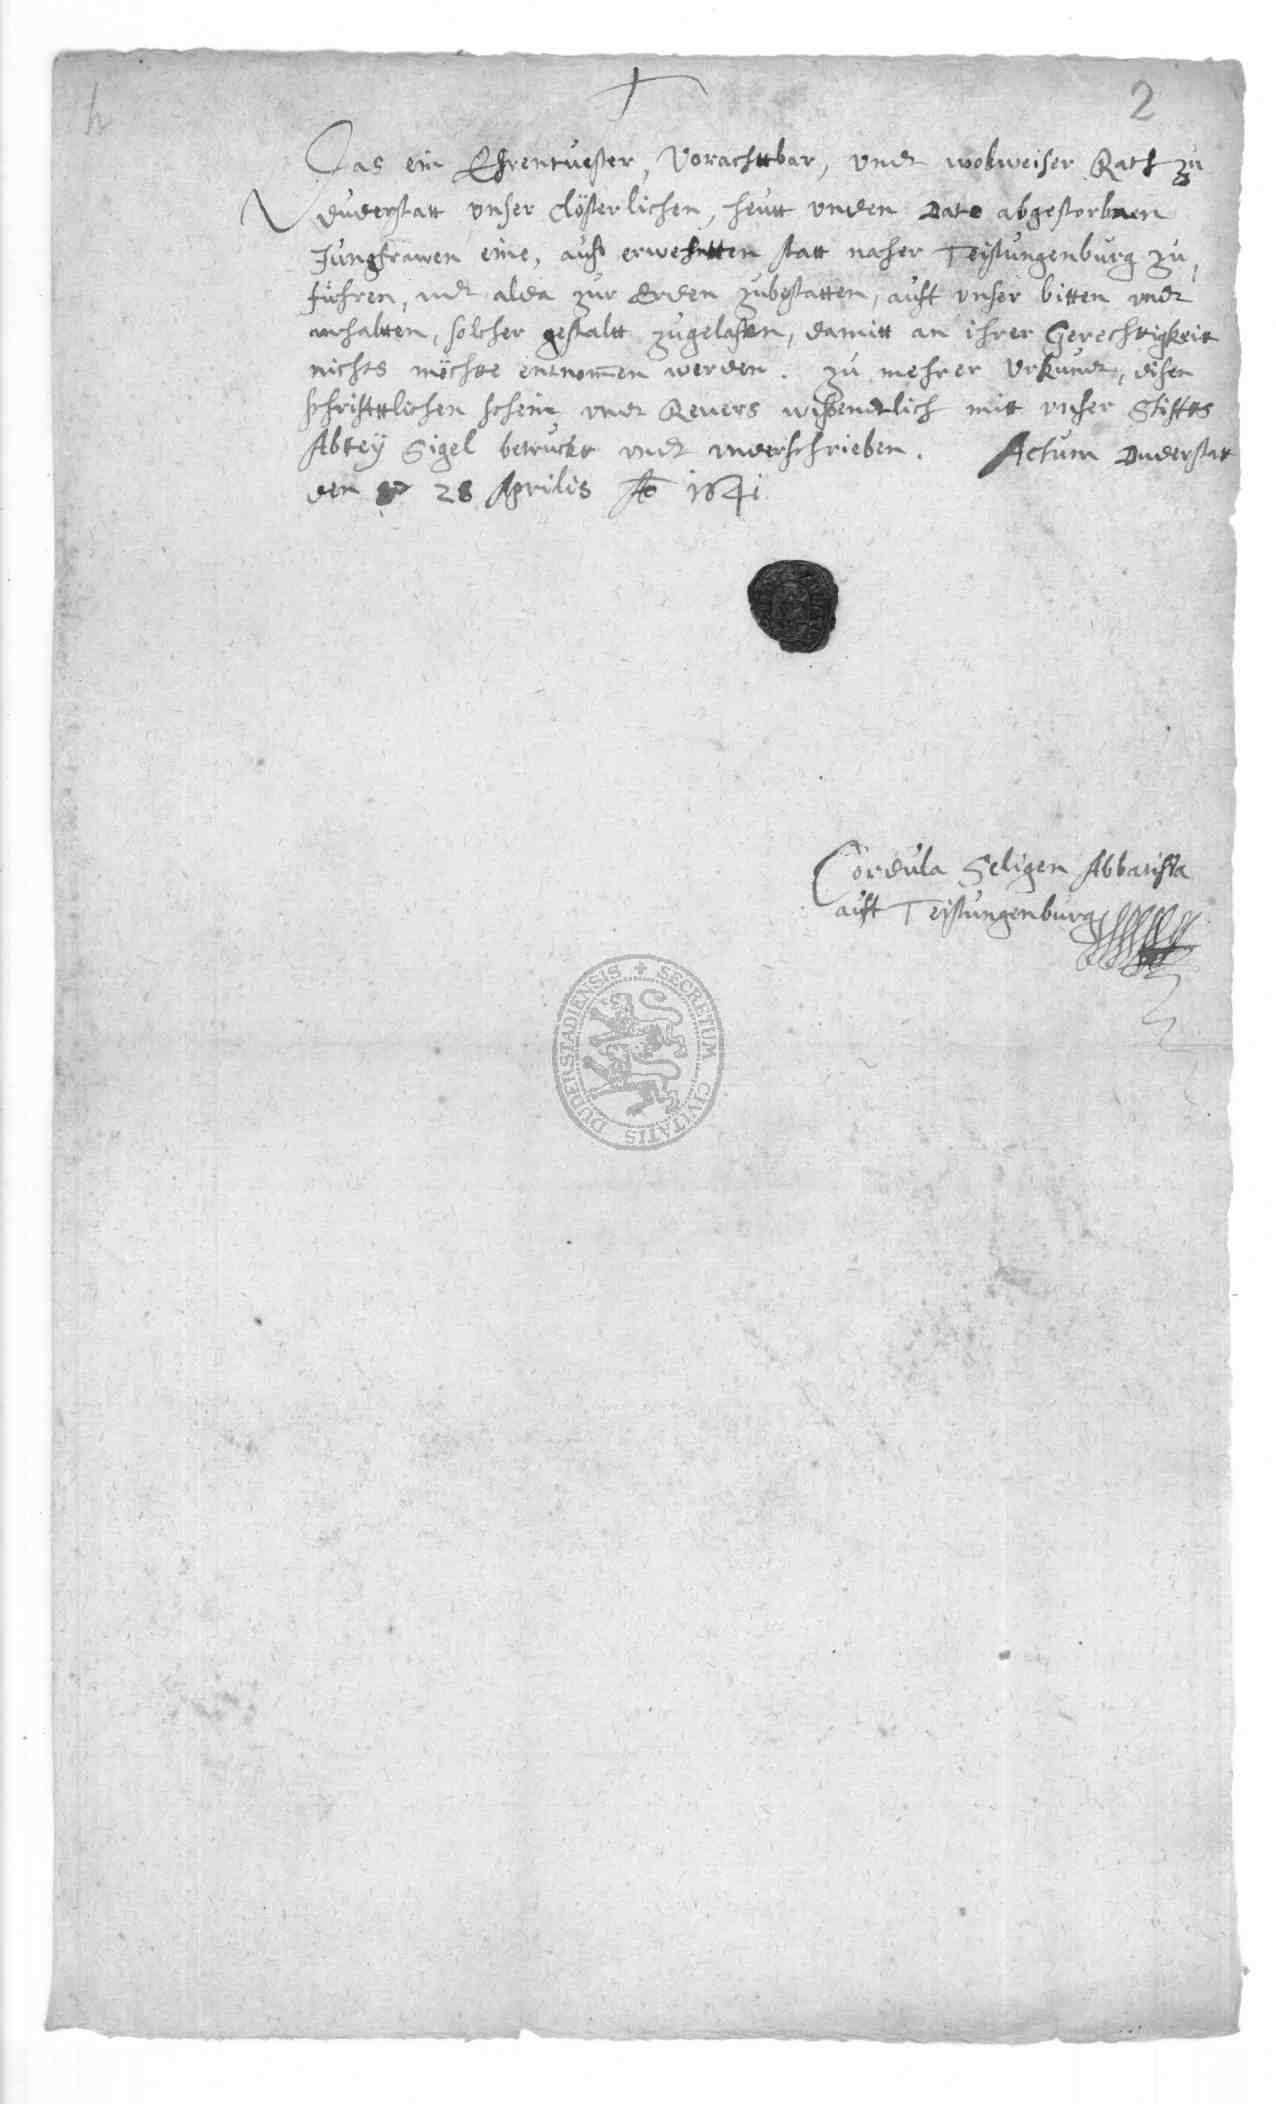 2
Das ein Ehrentuester, Vorachttbar, vndt wolweiser Rath zu
duderstatt vnser clösterlichen, heutt vnden Dato abgestorbnen
Jungfrawen eine, auß erwehntten statt naher Teistungenburg zu
führen, vndt alda zur Erden zubestatten, auft vnser bitten vndt
anhaltten, solcher gestaltt zugelaßen, damitt an ihrer Gerechtigkeit
nichts möchte entnommen werden. zu mehrer Vrkundt, disen
schrifttlichen schein vndt Revers wißendtlich mitt vnser Stiftts
Abtey Sigel betruckt vndt vnderschrieben. Actum Duderstat
den 28 Aprilis Ao 1641
Cordula Seligen Abbatißa
auft Teistungenburg
SECRETUM CIVITATIS DUDERSTADIENSIS